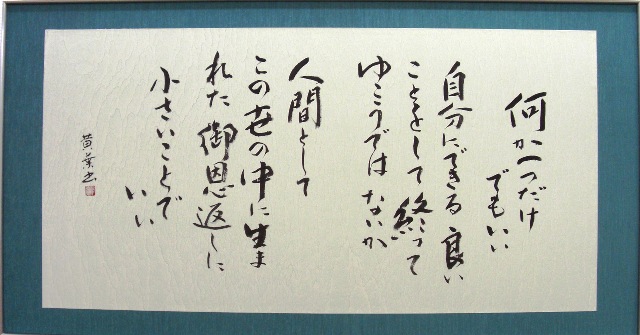 何か一つだけ
でもいい
自分にできる良い
ことをして終って
ゆこうではないか
人間として
この世の中に生ま
れた御恩返しに
小さいことで
いい
黄葉書